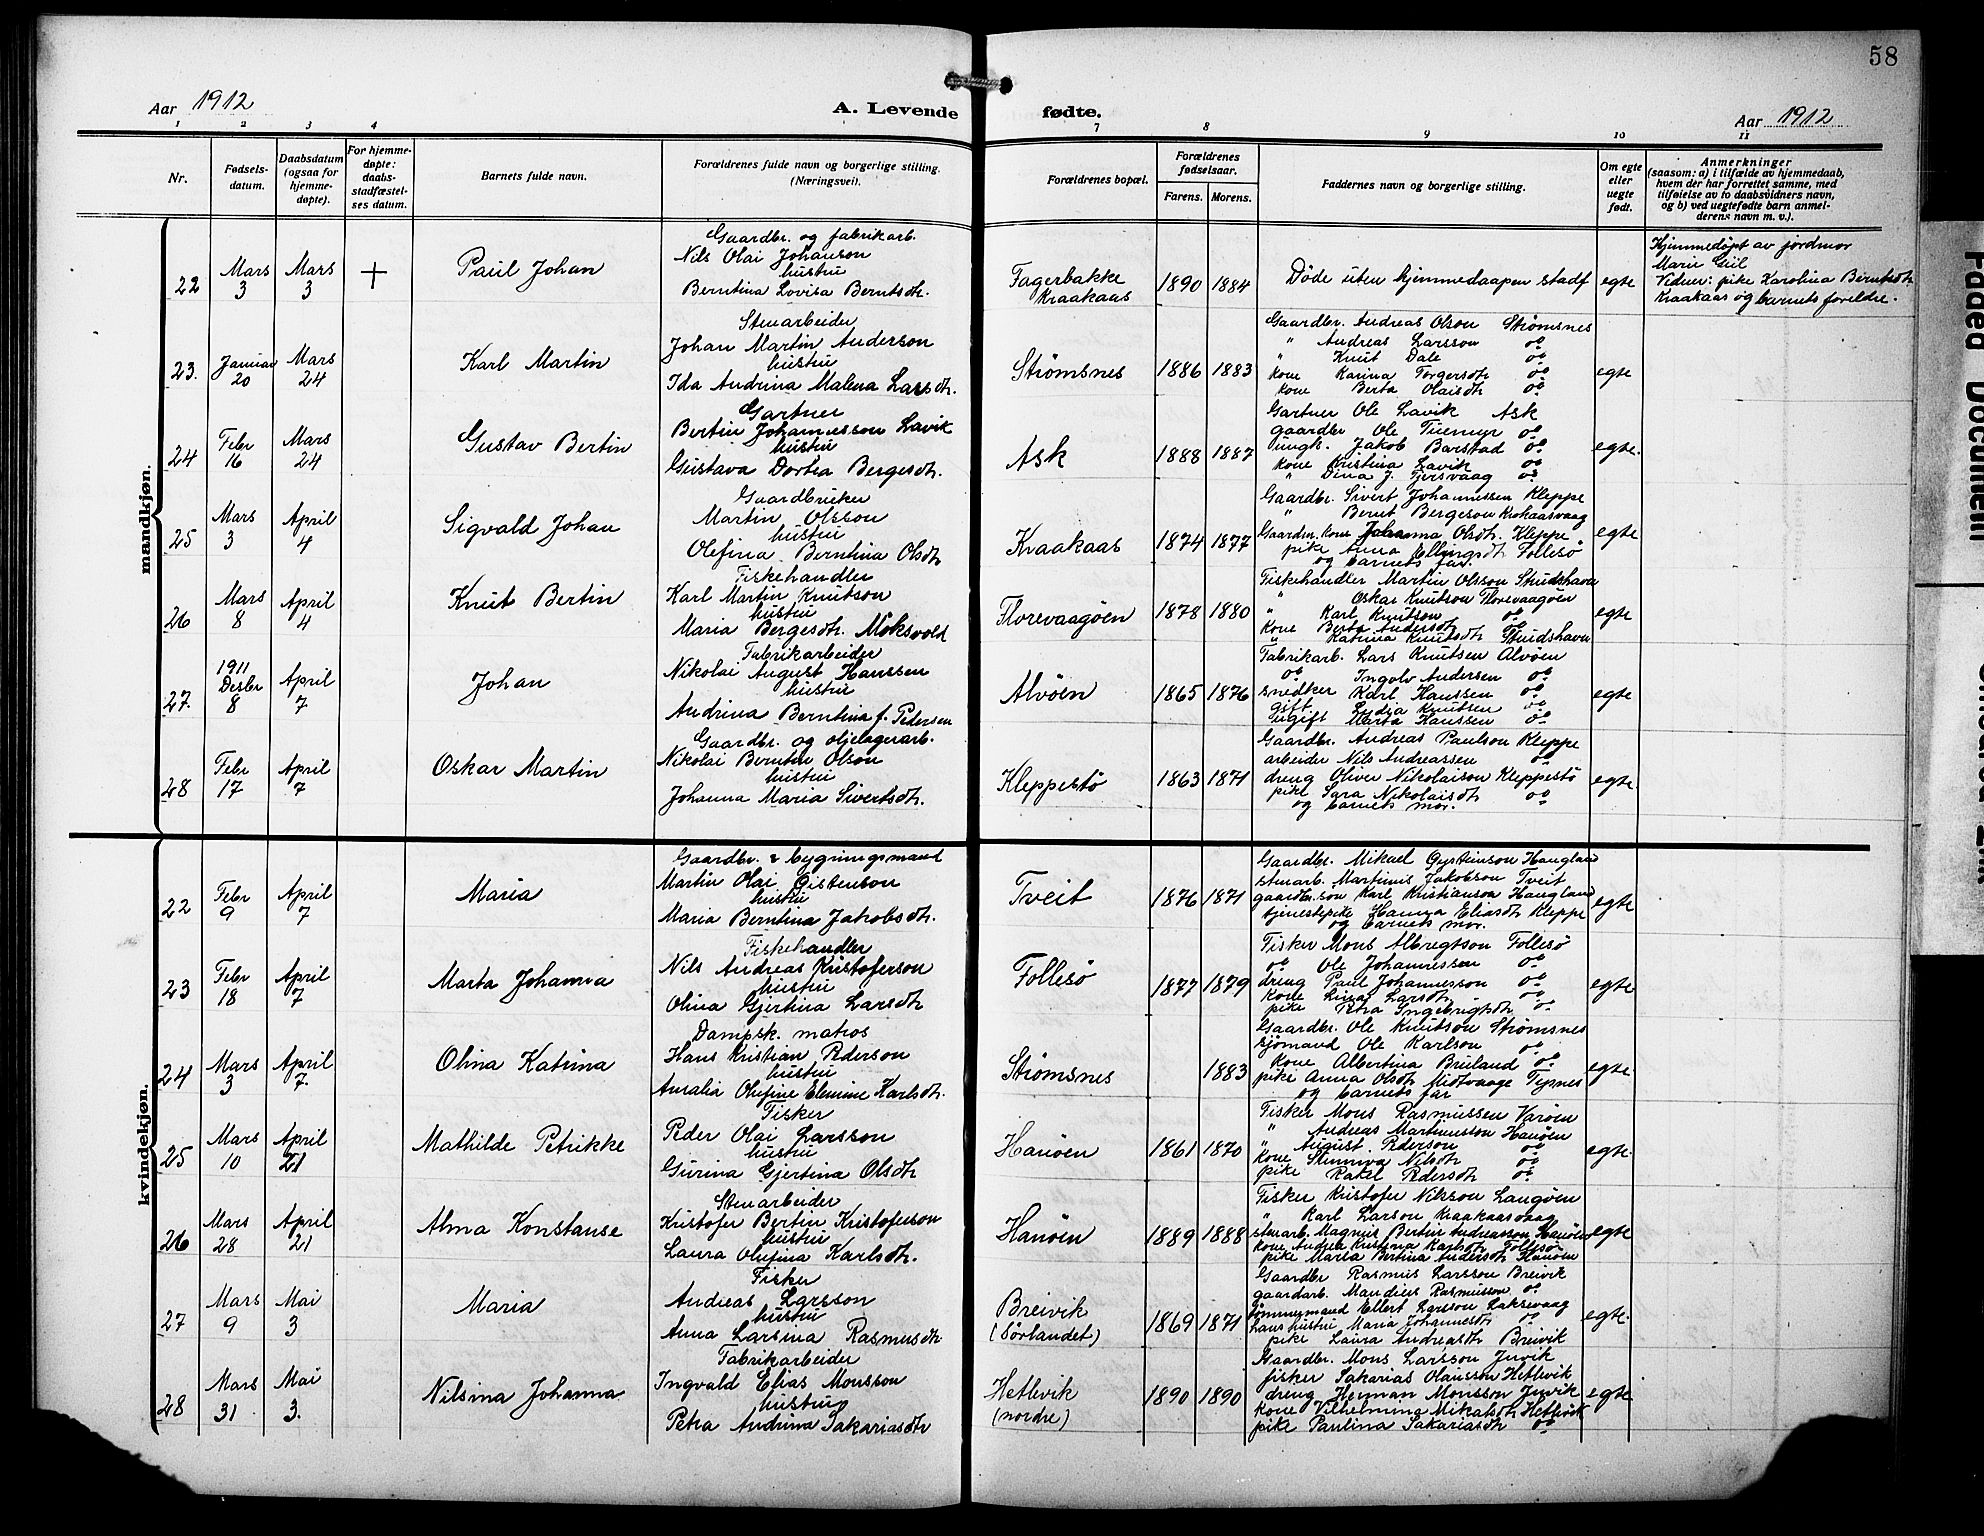 58
Aar 1912
A. Levende fødte.
Aar 1912
1 2 3 4 7 8 9 10 11
Nr.
Fødsels-
datum.
Daabsdatum
(ogsaa for
hjemme-
døpte).
For hjemme-
døpte:
daabs-
stadfæstel-
ses datum.
Barnets fulde navn.
Forældrenes fulde navn og borgerlige stilling.
(Næringsvei).
Forældrenes bopæl.
Forældrenes
fødselsaar.
Farens. Morens.
Faddernes navn og borgerlige stilling.
Om egte
eller
uegte
født.
Anmerkninger
(saasom: a) i tilfælde av hjemmedaab,
hvem der har forrettet samme, med
tilføielse av to daabsvidners navn,
og b) ved uegtefødte barn anmel-
derens navn m. v.).
mandkjøn.
22
Mars
3
Mars
3
+
Paul Johan
Gaardbr. og fabrikarb.
Nils Olai Johanson
hustru
Berntina Lovisa Berntsdtr.
Fagerbakke
Kraakaas
1890 1884
Døde uten hjemmedaapen stadf
egte
Hjemmedøpt av jordmor
Marie
Vidner: pike Karolina Berntsdtr
Kraakaas og barnets foreldre.
23.
Januar
20
Mars
24
Karl Martin
Stenarbeider
Johan Martin Anderson
hustru
Ida Andrina Malena Larsdtr.
Strømsnes
1886 1883
Gaardbr. Andreas Olson Strømsnes
" Andreas Larsson do
" Knut Dale do
kone Karina Torgersdtr do
kone Berta Olaisdtr do
egte
24
Febr
16
Mars
24
Gustav Bertin
Gartner
Bertin Johannesson Lavik
hustru
Gustava Dortea Bergesdtr.
Ask
1888 1887
Gartner Ole Lavik Ask
gaardbr Ole do
ungk. Jakob Barstad do
kone Kristina Lavik do
" Dina J. do
egte.
25
Mars
3
April
4
Sigvald Johan
Gaardbruker
Martin Olsson
hustru
Olefina Berntina Olsdtr
Kraakaas
1874 1877
Gaardbr. Sivert Johannessen Kleppe
" Bernt Bergeson Krokaasvaag
Gaardm. kone Johanna Olsdtr. Kleppe
pike Anna Ellingsdtr Follesø
og barnets far.
egte
26
Mars
8
April
4
Knut Bertin
Fiskehandler
Karl Martin Knutson
hustru
Maria Bergesdtr. Møksvold
Florevaagøen
1878 1880
Fiskehandler Martin Olsson Strudshavn
" Oskar Knutson Florevaagøen
" Karl Knutson do
kone Berta Andersdtr do
" Katrina Knutsdtr Strudshavn
egte
27.
1911
Desbr
8
April
7
Johan
Fabrikarbeider
Nikolai August Hanssen
hustru
Andrina Berntina f. Pedersen
Alvøen
1865 1876
Fabrikarb. Lars Knutsen Alvøen
do Ingolv Andersen do
snedker Karl Hanssen do
gift Lydia Knutsen do
ugift Marta Hanssen do
egte
28
Febr
17
April
7
Oskar Martin
Gaardbr. og oljelagerarb.
Nikolai Berntin Olson
hustru
Johanna Maria Sivertsdtr.
Kleppestø
1863 1871
Gaardbr. Andreas Paulson Kleppe
arbeider Nils Andreassen do
dreng Oliver Nikolaison Kleppestø
pike Sara Nikolaisdtr do
og barnets mor.
egte.
kvindekjøn.
22
Febr
9
April
7
Maria
Gaardbr. & bygningsmand
Martin Olai Gistenson
hustru
Maria Berntina Jakobsdtr.
Tveit
1876 1871
Gaardbr. Mikael Gysteinson Haugland
stenarb. Martinus Jakobson Tveit
gaardbr.son Karl Kristianson Haugland
tjenestepike Hanna Eliasdtr Kleppe
og barnets mor.
egte
23
Febr
18
April
7
Marta Johanna
Fiskehandler
Nils Andreas Kristoferson
hustru
Olina Gjertina Larsdtr
Follesø
1877 1879
Fisker Mons Albregtson Follesø
do Ole Johannessen do
dreng Paul Johannesson do
kone Lina Larsdtr do
pike Petra Ingebrigtsdtr do
egte
24
Mars
3
April
7.
Olina Katrina
Dampsk. matros
Hans Kristian Pederson
hustru
Amalia Olefine Elemine Karlsdtr.
Strømsnes
1883
Gaardbr. Ole Knutson Strømsnes
sjømand Ole Karlson do
kone Albertina Bruland do
pike Anna Olsdtr Midtvaage Tysnes
og barnets far
egte
25
Mars
10
April
21
Mathilde Petrikke
Fisker
Peder Olai Larsson
hustru
Gurina Gjertina Olsdtr
Hanøen
1861 1870
Fisker Mons Rasmussen Varøen
" Andreas Martinusson Hanøen
" August Pederson do
kone Sunniva Nilsdtr do
pike Rakel Pedersdtr do
egte.
26
Mars
28
April
21
Alma Konstanse
Stenarbeider
Kristofer Bertin Kristoferson
hustru
Laura Olefina Karlsdtr.
Hanøen
1889 1888
Fisker Kristofer Nilsson Langøen
" Karl Larson Kraakaasvaag
stenarb. Magnus Bertin Andreasson Hanøen
kone Andrea Kristina Karlsdtr Follesø
pike Maria Bertina Andersdtr Hanøen
egte
27
Mars
9
Mai
3
Maria
Fisker
Andreas Larsson
hustru
Anna Larsina Rasmusdtr
Breivik
(Sørlandet)
1869 1871
Gaardbr Rasmus Larsson Breivik
gaardarb. Mandius Rasmusson do
tømmermand Ellert Larsson Laksevaag
hans hustru Maria Johannesdtr do
pike Laura Andreasdtr Breivik
egte.
28
Mars
31
Mai
3.
Nilsina Johanna
Fabrikarbeider
Ingvald Elias Monsson
hustru
Petra Andrina Sakariasdtr
Hetlevik
(nordre)
1890 1890
Gaardbr. Mons Larsson Juvik
fisker Sakarias Olausson Hetlevik
dreng Herman Monsson Juvik
kone Vilhelmina Mikalsdtr Hetlevik
pike Paulina Sakariasdtr do
egte
Faded Document